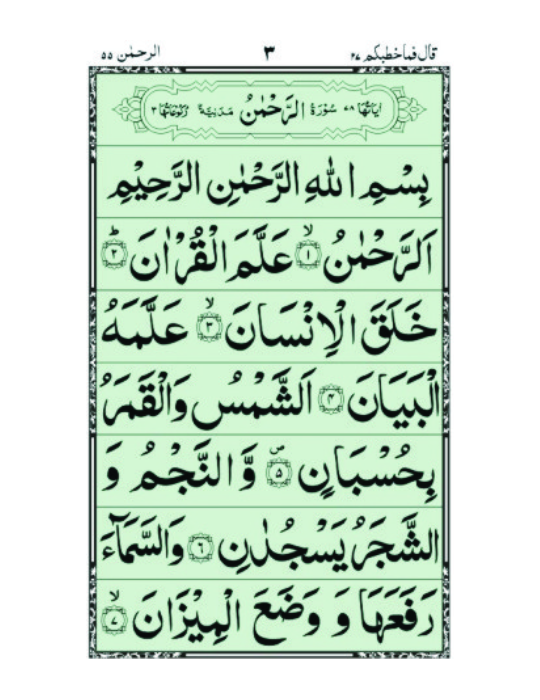 قال فما خطبكم ٢٧ ٣ الرحمٰن ٥٥
اٰيَاتُهَا ٧٨ سُوْرَةُ الرَّحْمٰنُ مَدَنِيَّةٌ رُكُوْعَاتُهَا ٣
بِسْمِ اللهِ الرَّحْمٰنِ الرَّحِيْمِ
اَلرَّحْمٰنُ ۙ﴿١﴾ عَلَّمَ الْقُرْاٰنَ ؕ﴿٢﴾
خَلَقَ الْاِنْسَانَ ۙ﴿٣﴾ عَلَّمَهُ
الْبَيَانَ ﴿٤﴾ اَلشَّمْسُ وَالْقَمَرُ
بِحُسْبَانٍ ۪﴿٥﴾ وَّ النَّجْمُ وَ
الشَّجَرُ يَسْجُدٰنِ ﴿٦﴾ وَالسَّمَآءَ
رَفَعَهَا وَ وَضَعَ الْمِيْزَانَ ۙ﴿٧﴾